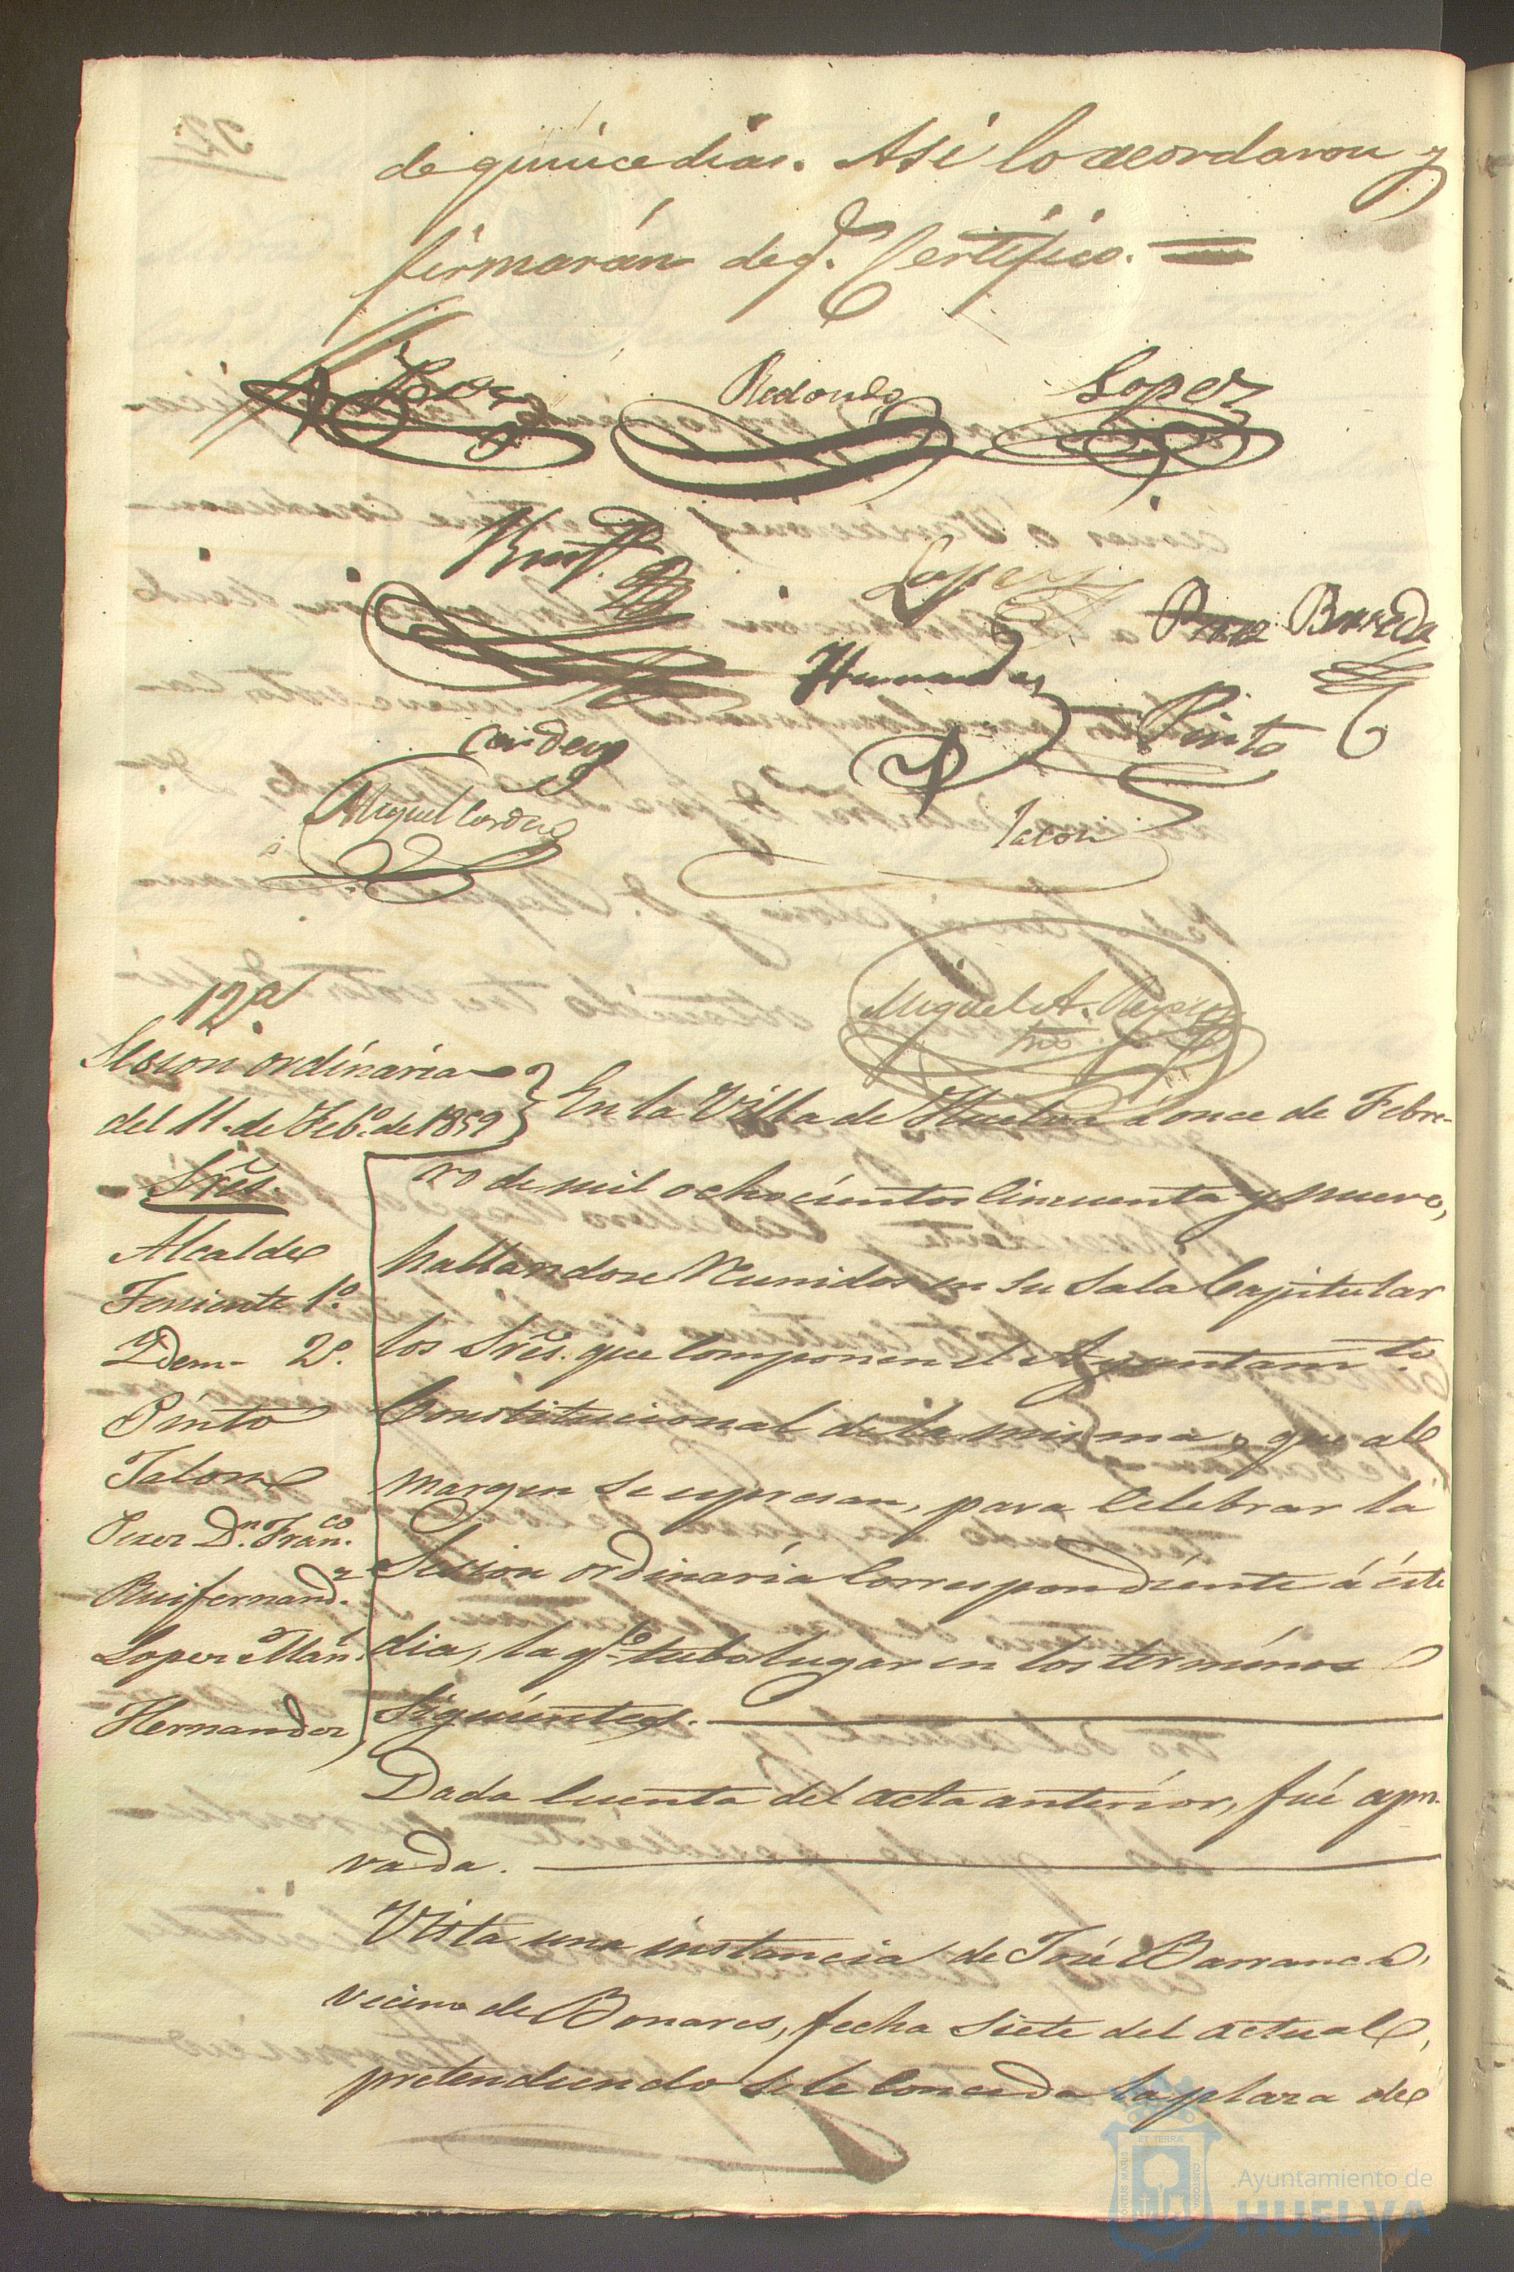 de quince dias. Asi lo acordaron y
firmarán de q.e Certifico. =
Redondo
Lopez
Lopez
Perez Barreda
Hernandez
Pinto
Cordero
Miguel Cordero
Jalon
Miguel A.
12ª
Sesion ordinaria
del 11 de Feb.o de 1859
Sres.
Alcalde
Teniente 1º.
Idem 2º.
Pinto
Jalon
Perez D.n Fran.co
Ruifernand.z
Lopez Man.l
Hernandez
En la Villa de Huelva á once de Febre-
ro de mil ochocientos cincuenta y nueve,
hallandose reunidos en su Sala Capitular
los Sres. que componen el Ayuntam.to
Constitucional de la misma, que al
margen se espresan, para celebrar la
Sesion ordinaria correspondiente á éste
dia, la q.e tubo lugar en los términos
siguientes.
Dada cuenta del acta anterior, fué apro-
vada.
Vista una instancia de José Barranca,
vecino de Bonares, fecha siete del actual,
pretendiendo se le conceda la plaza de
Ayuntamiento de
HUELVA